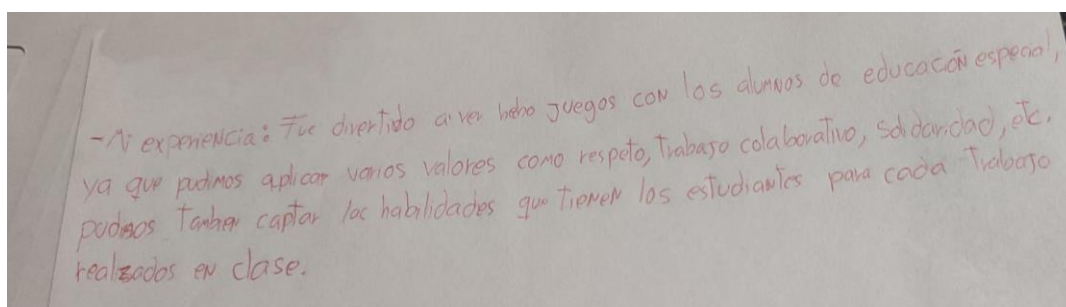 -Mi experiencia: Fue divertido a ver hehо juegos con los alumnos de educación especial,
ya que pudimos aplicar varios valores como respeto, Trabajo colaborativo, solidaridad, etc.
pudimos Tambien captar las habilidades que tienen los estudiantes para cada Trabajo
realizados en clase.